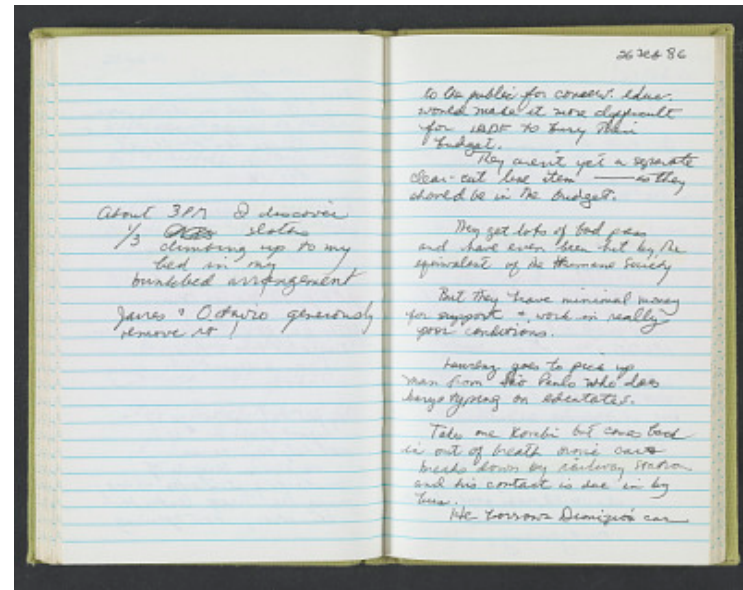 About 3PM I discover
1/3 sloths
climbing up to my
bed in my
bunkbed arrangement
James & Octavio generously
remove it!
26 Feb 86
to be public for conserv. educ.
would make it more difficult
for IBDF to bury their
budget.
They aren't yet a separate
clear-cut line item — as they
should be in the budget.
They get lots of bad press
and have even been hit by the
equivalent of the Humane Society
But they have minimal money
for support &, work in really
poor conditions.
goes to pick up
man from São Paulo who does
karyotyping on edentates.
Takes one Kombi but comes back
in out of breath car
breaks down by railway station
and his contact is due in by
bus.
He borrows Dionizio's car